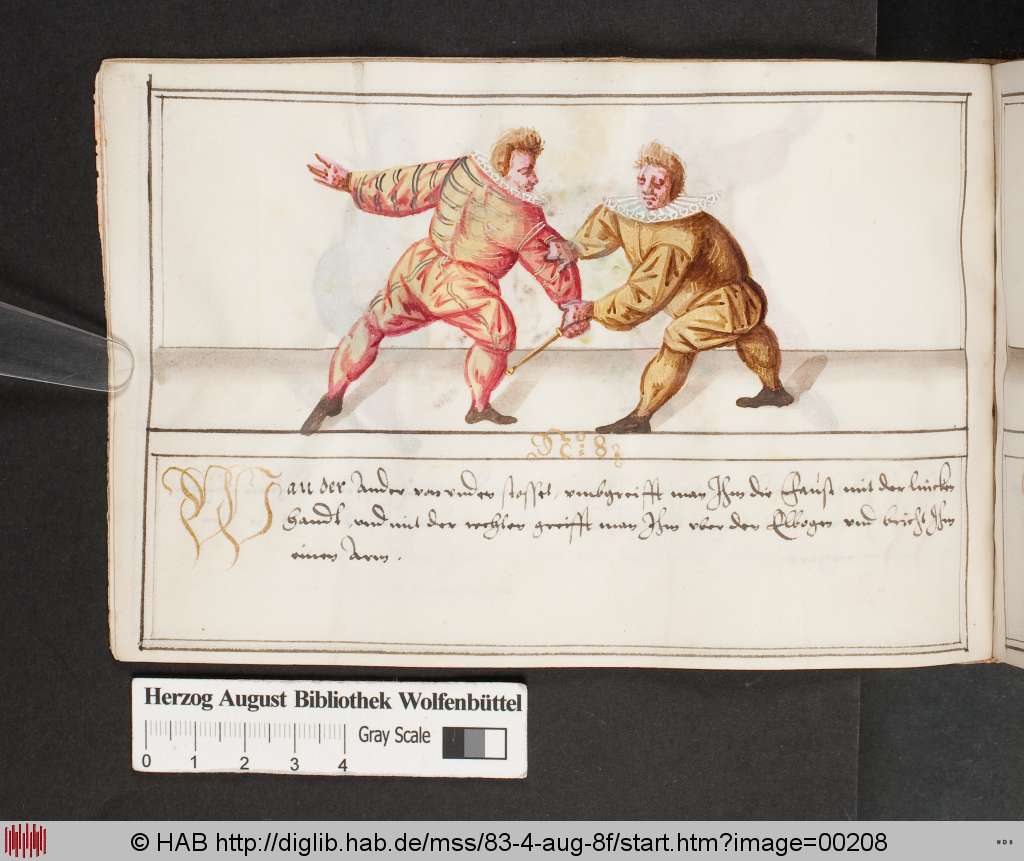 No 83
Wan der Ander von vnden stosset, vmbgreifft man Ihm die Faust mit der lincken
handt, vnd mit der rechten greifft man Ihm vber den Elbogen vnd bricht Ihm
einen Arm.
Herzog August Bibliothek Wolfenbüttel
Gray Scale
0 1 2 3 4
© HAB http://diglib.hab.de/mss/83-4-aug-8f/start.htm?image=00208